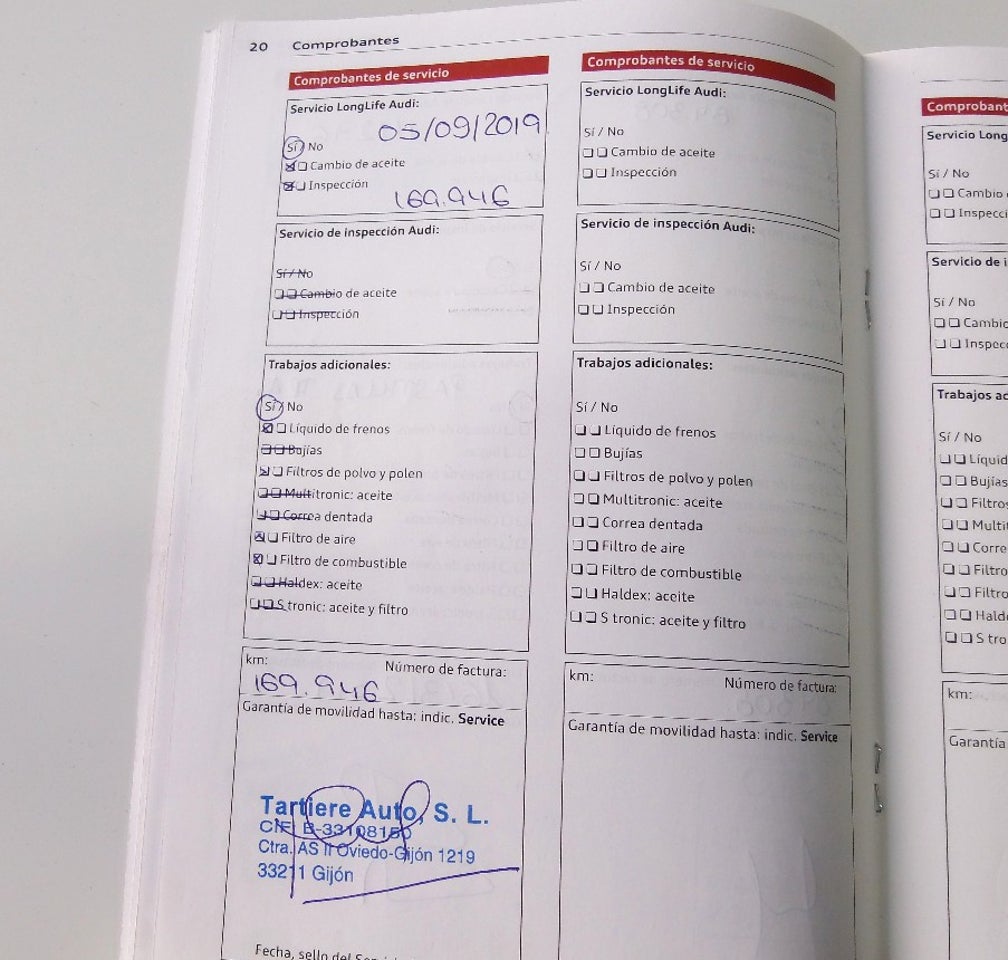 20 Comprobantes
Comprobantes de servicio
Servicio LongLife Audi:
05/09/2019
Sí / No
Cambio de aceite
Inspección
169.946
Servicio de inspección Audi:
Sí / No
Cambio de aceite
Inspección
Trabajos adicionales:
Sí / No
Líquido de frenos
Bujías
Filtros de polvo y polen
Multitronic: aceite
Correa dentada
Filtro de aire
Filtro de combustible
Haldex: aceite
S tronic: aceite y filtro
km: Número de factura:
169.946
Garantía de movilidad hasta: indic. Service
Tartiere Auto, S. L.
CIF. B-33108150
Ctra. AS II Oviedo-Gijón 1219
33211 Gijón
Fecha, sello del
Comprobantes de servicio
Servicio LongLife Audi:
Sí / No
Cambio de aceite
Inspección
Servicio de inspección Audi:
Sí / No
Cambio de aceite
Inspección
Trabajos adicionales:
Sí / No
Líquido de frenos
Bujías
Filtros de polvo y polen
Multitronic: aceite
Correa dentada
Filtro de aire
Filtro de combustible
Haldex: aceite
S tronic: aceite y filtro
km: Número de factura:
Garantía de movilidad hasta: indic. Service
Comprobant
Servicio Long
Sí / No
Cambio
Inspecci
Servicio de i
Sí / No
Cambio
Inspec
Trabajos ad
Sí / No
Líquid
Bujías
Filtros
Multi
Corre
Filtro
Filtro
Hald
S tro
km:
Garantía